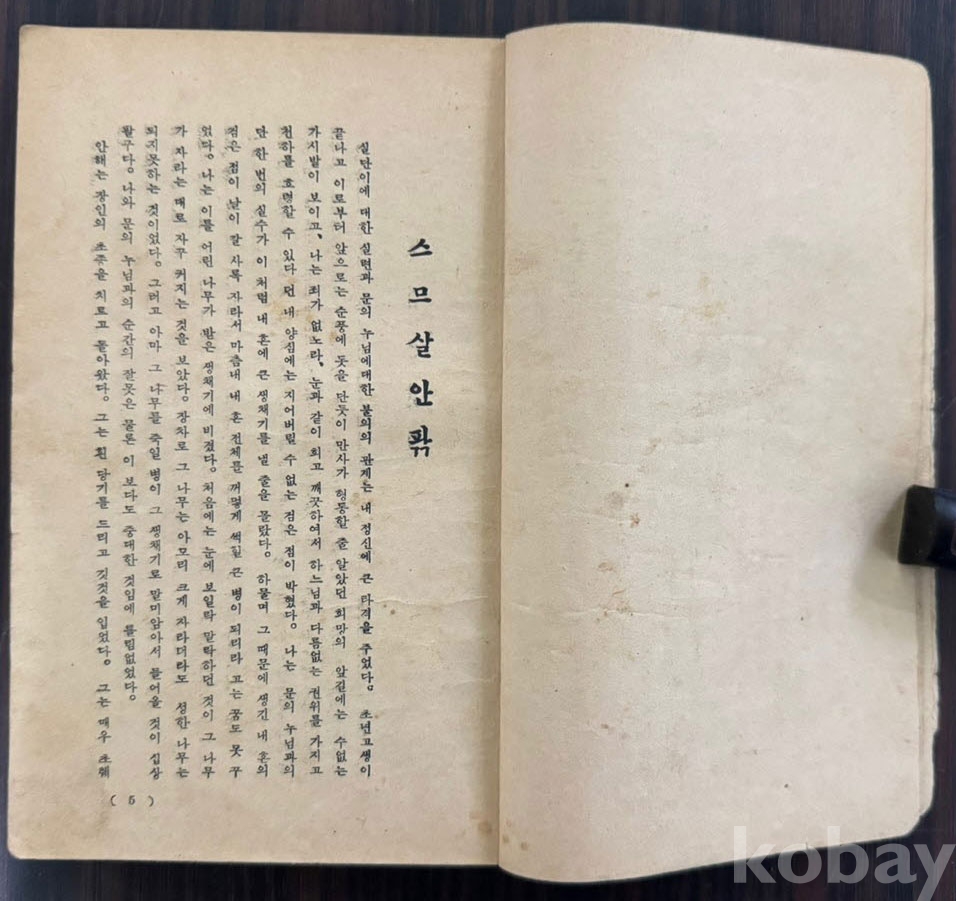 스므살안팎
실단이에 대한 실련과 문의 누님에대한 불의의 관계는 내 정신에 큰 타격을 주었다. 초년고생이
끝나고 이로부터 앞으로는 순풍에 돗을 단듯이 만사가 형통할 줄 알았던 희망의 앞길에는 수없는
가시발이 보이고, 나는 죄가 없노라, 눈과 같이 희고 깨끗하여서 하느님과 다름없는 권위를 가지고
천하를 호령할 수 있다 던 내 양심에는 지어버릴 수 없는 검은 점이 박혔다. 나는 문의 누님과의
단 한 번의 실수가 이 처럼 내 혼에 큰 생채기를 낼 줄을 몰랐다. 하물며 그 때문에 생긴 내 혼의
검은 점이 날이 갈 사록 자라서 마츰내 내 혼 전체를 꺼멓게 썩힐 큰 병이 되리라 고는 꿈도 못 꾸
었다. 나는 이를 어린 나무가 받은 생채기에 비겼다. 처음에는 눈에 보일락 말락하던 것이 그 나무
가 자라는 대로 자꾸 커지는 것을 보았다. 장차로 그 나무는 아모리 크게 자라더라도 성한 나무는
되지못하는 것이었다. 그러고 아마 그 나무를 죽일 병이 그 생채기로 말미암아서 들어올 것이 십상
팔구다. 나와 문의 누님과의 순간의 잘못은 물론 이 보다도 중대한 것임에 틀림없었다.
안해는 장인의 초종을 치르고 돌아왔다. 그는 흰 당기를 드리고 깃것을 입었다. 그는 매우 초췌
( 5 )
kobay